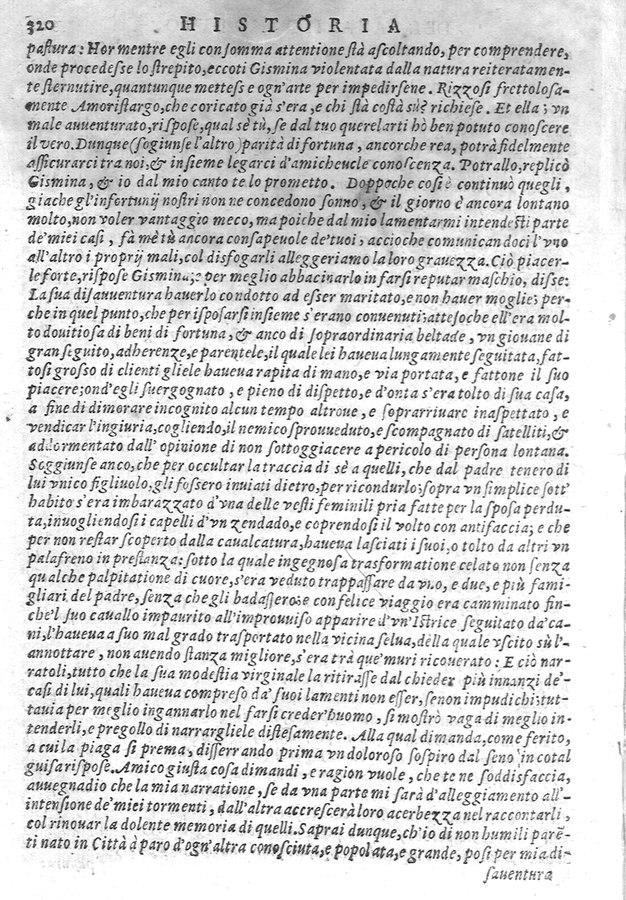 320 HISTORIA
pastura: Hor mentre egli con somma attentione stà ascoltando, per comprendere,
onde procedesse lo strepito, eccoti Gismina violentata dalla natura reiteratamen-
te sternutire, quantunque mettess e ogn'arte per impedirsene. Rizzosi frettolosa-
mente Amoristargo, che coricato già s'era, e chi stà costà sù? richiese. Et ella; vn
male auuenturato, rispose, qual sè tù, se dal tuo querelarti hò ben potuto conoscere
il vero. Dunque (sogiunse l'altro) parità di fortuna, ancorche rea, potrà fidelmente
assicurarci tra noi, & insieme legarci d'amicheuole conoscenza. Potrallo, replicò
Gismina, & io dal mio canto te lo prometto. Doppoche così è continuò quegli,
giache gl'infortunij nostri non ne concedono sonno, & il giorno è ancora lontano
molto, non voler vantaggio meco, ma poiche dal mio lamentarmi intendesti parte
de'miei casi, fà mè tù ancora consapeuole de'tuoi, accioche comunicandoci l'vno
all'altro i proprij mali, col disfogarli alleggeriamo la loro grauezza. Ciò piacer-
le forte, rispose Gismina; e per meglio abbacinarlo in farsi reputar maschio, disse:
La sua disauuentura hauerlo condotto ad esser maritato, e non hauer moglie; per-
che in quel punto, che per isposarsi insieme s'erano conuenuti; attesoche ell'era mol-
to douitiosa di beni di fortuna, & anco di sopraordinaria beltade, vn giouane di
gran seguito, adherenze, e parentele, il quale lei haueua lungamente seguitata, fat-
tosi grosso di clienti gliele haueua rapita di mano, e via portata, e fattone il suo
piacere; ond'egli suergognato, e pieno di dispetto, e d'onta s'era tolto di sua casa,
a fine di dimorare incognito alcun tempo altroue, e soprarriuare inaspettato, e
vendicar l'ingiuria, cogliendo, il nemico sproueduto, e scompagnato di satelliti, &
addormentato dall'opinione di non sottoggiacere a pericolo di persona lontana.
Soggiunse anco, che per occultar la traccia di sè a quelli, che dal padre tenero di
lui vnico figliuolo, gli fossero inuiati dietro, per ricondurlo; sopra vn simplice sott'
habito s'era imbarazzato d'vna delle vesti feminili pria fatte per la sposa perdu-
ta, inuogliendosi i capelli d'vn zendado, e coprendosi il volto con antifaccia; e che
per non restar scoperto dalla caualcatura, haueua lasciati i suoi, o tolto da altri vn
palafreno in prestanza: sotto la quale ingegnosa trasformatione celato non senza
qualche palpitatione di cuore, s'era veduto trappassare da vno, e due, e più fami-
gliari del padre, senza che gli badassero; e con felice viaggio era camminato fin-
che'l suo cauallo impaurito all'improuuiso apparire d'vn'Istrice seguitato da'ca-
ni, l'haueua a suo mal grado trasportato nella vicina selua, della quale vscito sù l'-
annottare, non auendo stanza migliore, s'era trà que'muri ricouerato: E ciò nar-
ratoli, tutto che la sua modestia virginale la ritirasse dal chieder più innanzi de'-
casi di lui, quali haueua compreso da'suoi lamenti non esser, senon impudichi; tut-
tauia per meglio ingannarlo nel farsi creder huomo, si mostrò vaga di meglio in-
tenderli, e pregollo di narrargliele distesamente. Alla qual dimanda, come ferito,
a cui la piaga si prema, disserrando prima vn doloroso sospiro dal seno in cotal
guisa rispose. Amico giusta cosa dimandi, e ragion vuole, che te ne soddisfaccia,
auuegnadio che la mia narratione, se da vna parte mi sarà d'alleggiamento all'-
intensione de'miei tormenti, dall'altra accrescerà loro acerbezza nel raccontarli,
col rinouar la dolente memoria di quelli. Saprai dunque, ch'io di non humili parē-
ti nato in Città à paro d'ogn'altra conosciuta, e popolata, e grande, posi per mia di-
sauentura